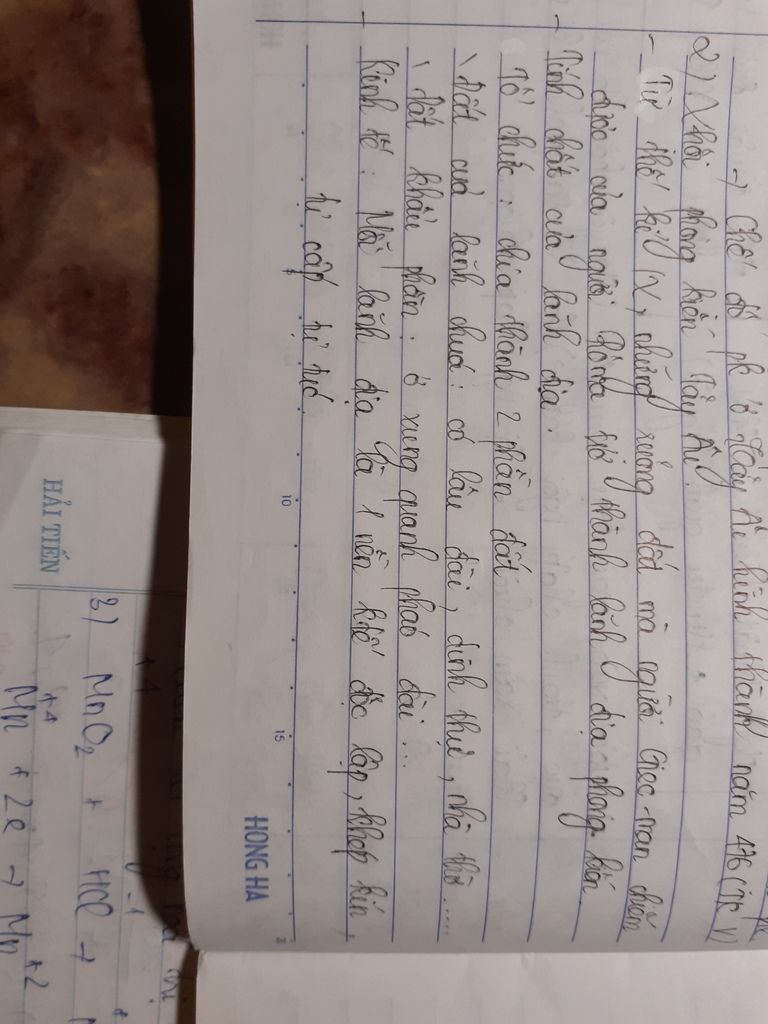 → Chế độ pk ở Tây Âu hình thành năm 476 (TK V)
2) Xã hội phong kiến Tây Âu
- Từ thế kỉ IX, những xưởng đất mà người Giec-man chiếm
được của người Rôma trở thành lãnh địa phong kiến.
- Tính chất của lãnh địa.
Tổ chức: chia thành 2 phần đất
\ Đất của lãnh chúa: có lâu đài, dinh thự, nhà thờ.....
\ Đất khẩu phần: ở xung quanh pháo đài...
- Kinh tế: Mỗi lãnh địa là 1 nền ktế độc lập, khép kín,
tự cấp tự túc
10
15
HONG HA
HẢI TIẾN
+4 -1
3) MnO2 + HCl →
+4 +2
Mn + 2e → Mn